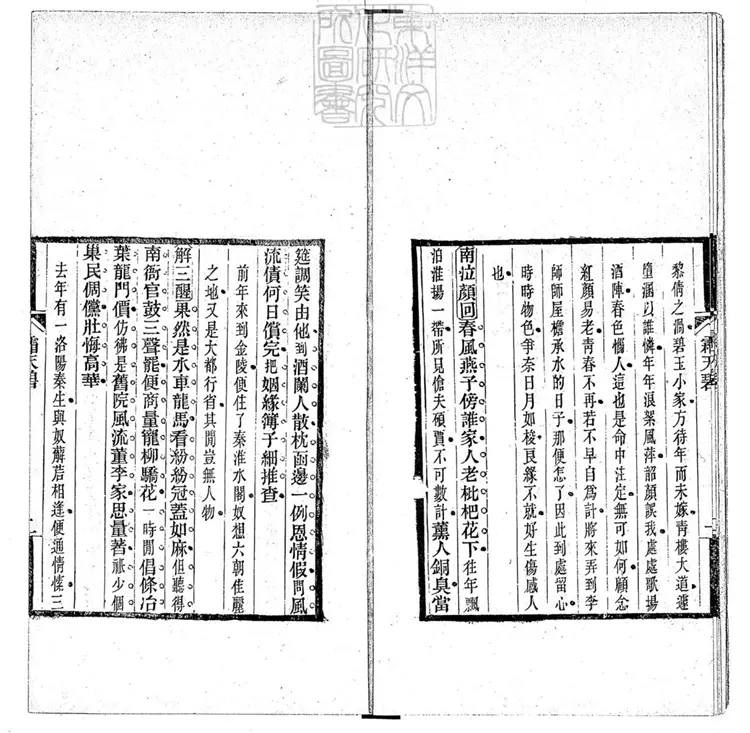 黎倩之渦碧玉小家方待年而未嫁青樓大道遽
墮溷以誰憐年年浪絮風萍韶顏誤我處處歌揚
酒陣春色惱人這也是命中注定無可如何顧念
紅顏易老青春不再若不早自爲計將來弄到李
師師屋檐承水的日子那便怎了因此到處留心
時時物色爭奈日月如梭良緣不就好生傷感人
也
南泣顏回春風燕子傍誰家人老枇杷花下往年飄
泊淮揚一帶所見傖夫碩賈不可數計薰人銅臭當
霜天碧
一
筵調笑由他到酒闌人散枕函邊一例恩情假問風
流債何日償完把姻緣簿子細推查
前年來到金陵便住了秦淮水閣奴想六朝佳麗
之地又是大都行省其閒豈無人物
解三酲果然是水車龍馬看紛紛冠蓋如麻但聽得
南衙官鼓三聲罷便商量寵柳驕花一時閒倡條冶
葉龍門價仿彿是舊院風流董李家思量著祗少個
巢民倜儻壯悔高華
去年有一洛陽秦生與奴薢茩相逢便通情愫三
霜天碧
二
東洋文化研究所圖書